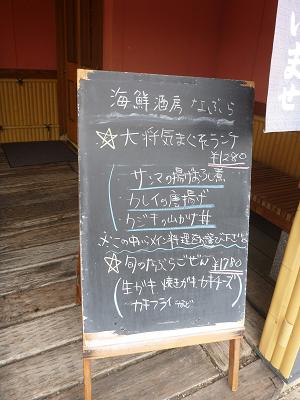 海鮮酒房 なぶら
☆大将気まぐれランチ
¥1280
サンマの揚げおろし煮
カレイの唐揚げ
クジキの山かけ丼
※この中からメイン料理をお選び下さい。
☆旬のなぶらごぜん
¥1780
(生ガキ 焼きガキ カキチーズ
カキフライ など)
いませ